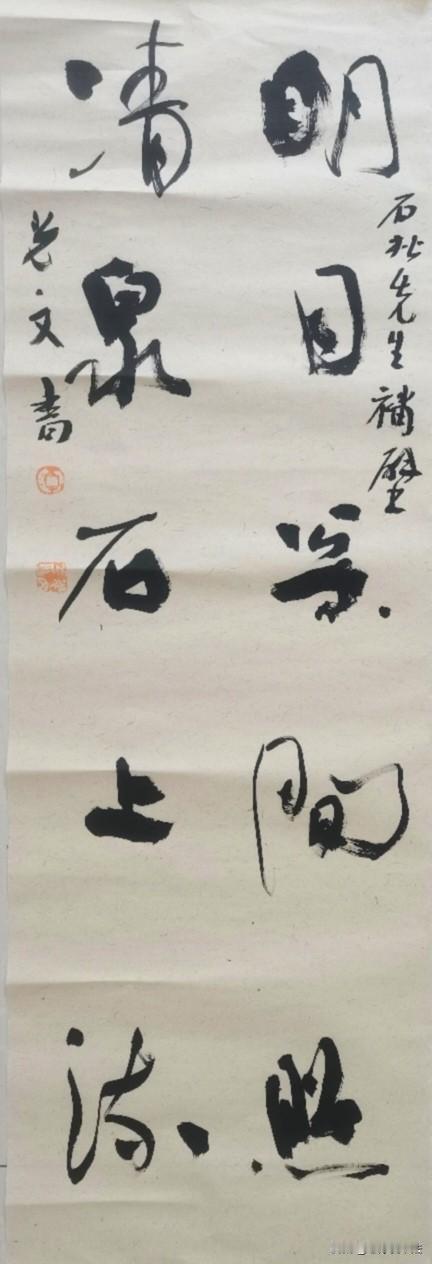 明月松間照
先生補壁
清泉石上流
文書